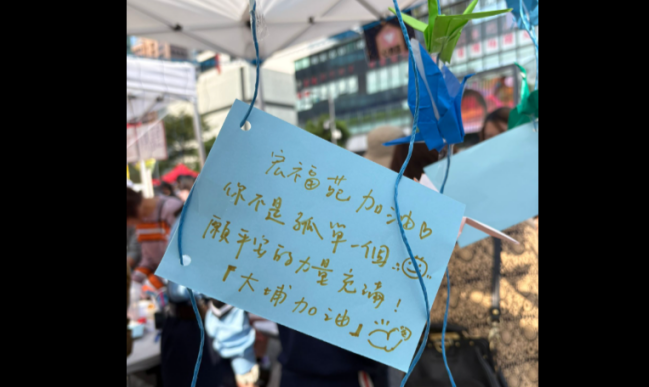 宏福苑加油♡
你不是孤單一個..☺
願平安的力量充滿！
『大埔加油』